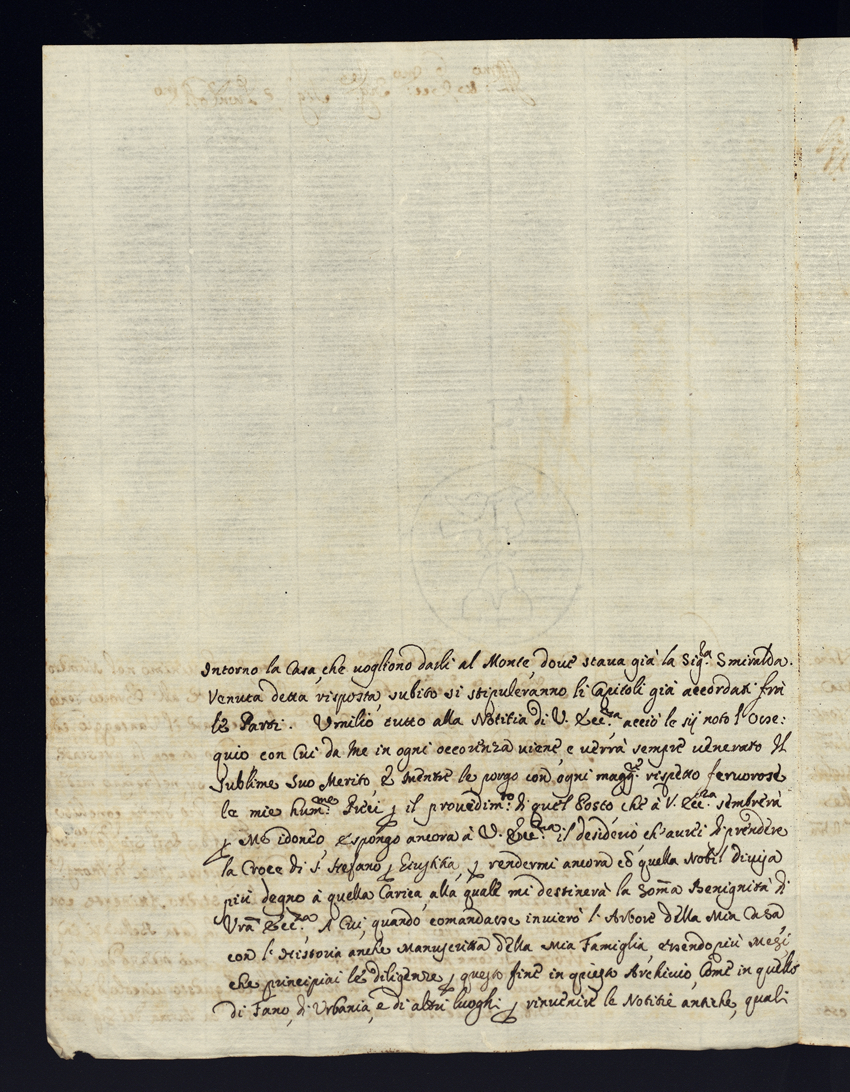 Intorno la Casa, che vogliono darli al Monte, dove stava già la Sig.ra Smiralda.
Venuta detta risposta, subito si stipuleranno li Capitoli già accordati frà
le Parti. Umilio tutto alla Notitia di V. Ecc.za acciò le sij noto l'Osse:
quio con Cui da Me in ogni occorenza viene, e verrà sempre venerato Il
Sublime Suo Merito, E mentre le porgo con ogni magg.re rispetto fervorose
le mie hum.me Preci p il provedim.to di quel Posto che à V. Ecc.za sembrerà
p Me idoneo, Espongo ancora à V. Ecc.za il desiderio ch'avrei di prendere
la Croce di S. Stefano p Giustitia, p rendermi ancora cõ quella Nobil divisa
più degno à quella Carica, alla quale mi destinerà la Som̃a Benignità di
Vr̃a Ecc.za A Cui, quando comandasse invierò l'Arbore della Mia Casa,
con l'Historia anche Manuscritta della Mia Famiglia, essendo più Mesi,
che principiai le diligenze p questo fine in questo Archivio, Come in quello
di Fano, di Urbania, e di altri luoghi p rinvenire le Notitie antiche, quali